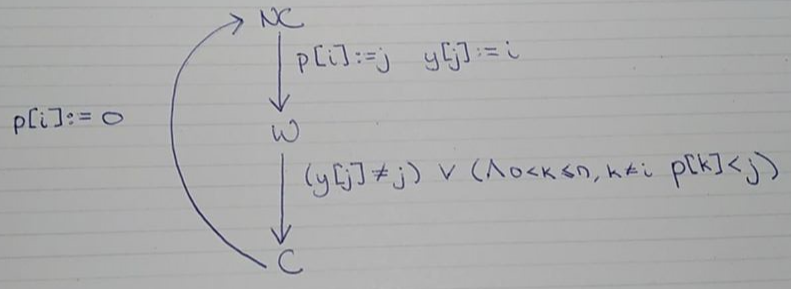 NC
p[i]:=j y[j]:=i
p[i]:=0
W
(y[j]≠j) ∨ (∧0<k≤n, k≠i p[k]<j)
C